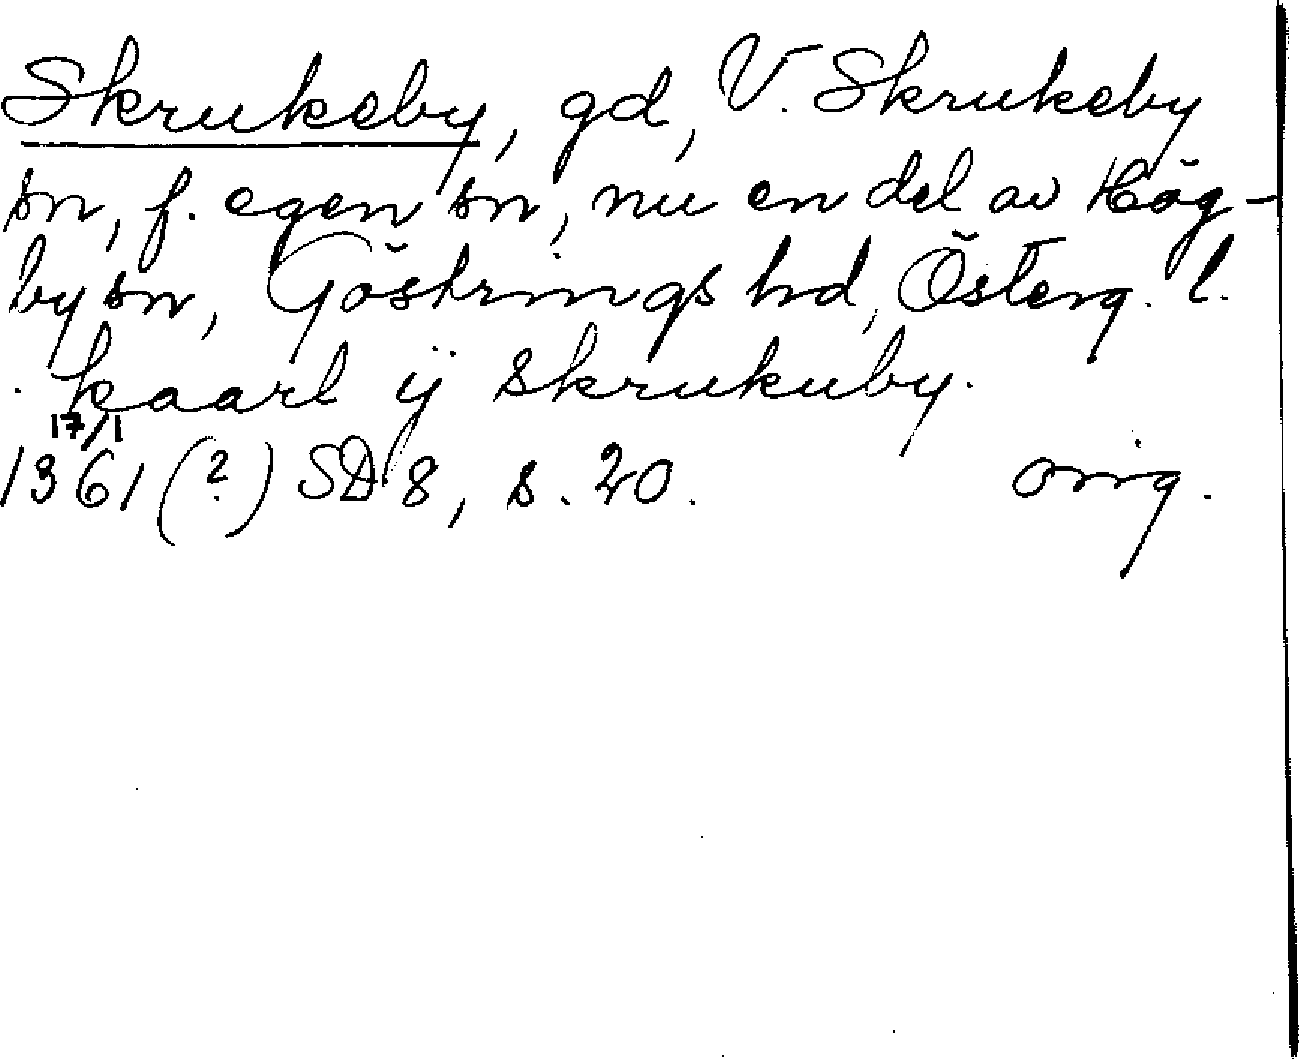 Skrukeby, gd, V. Skrukeby
sn, f. egen sn, nu en del av Hög-
by sn, Göstrings hd, Österg. l.
kaarl ij skrukuby.
17/1
1361 (?) SD 8, s. 20. orig.